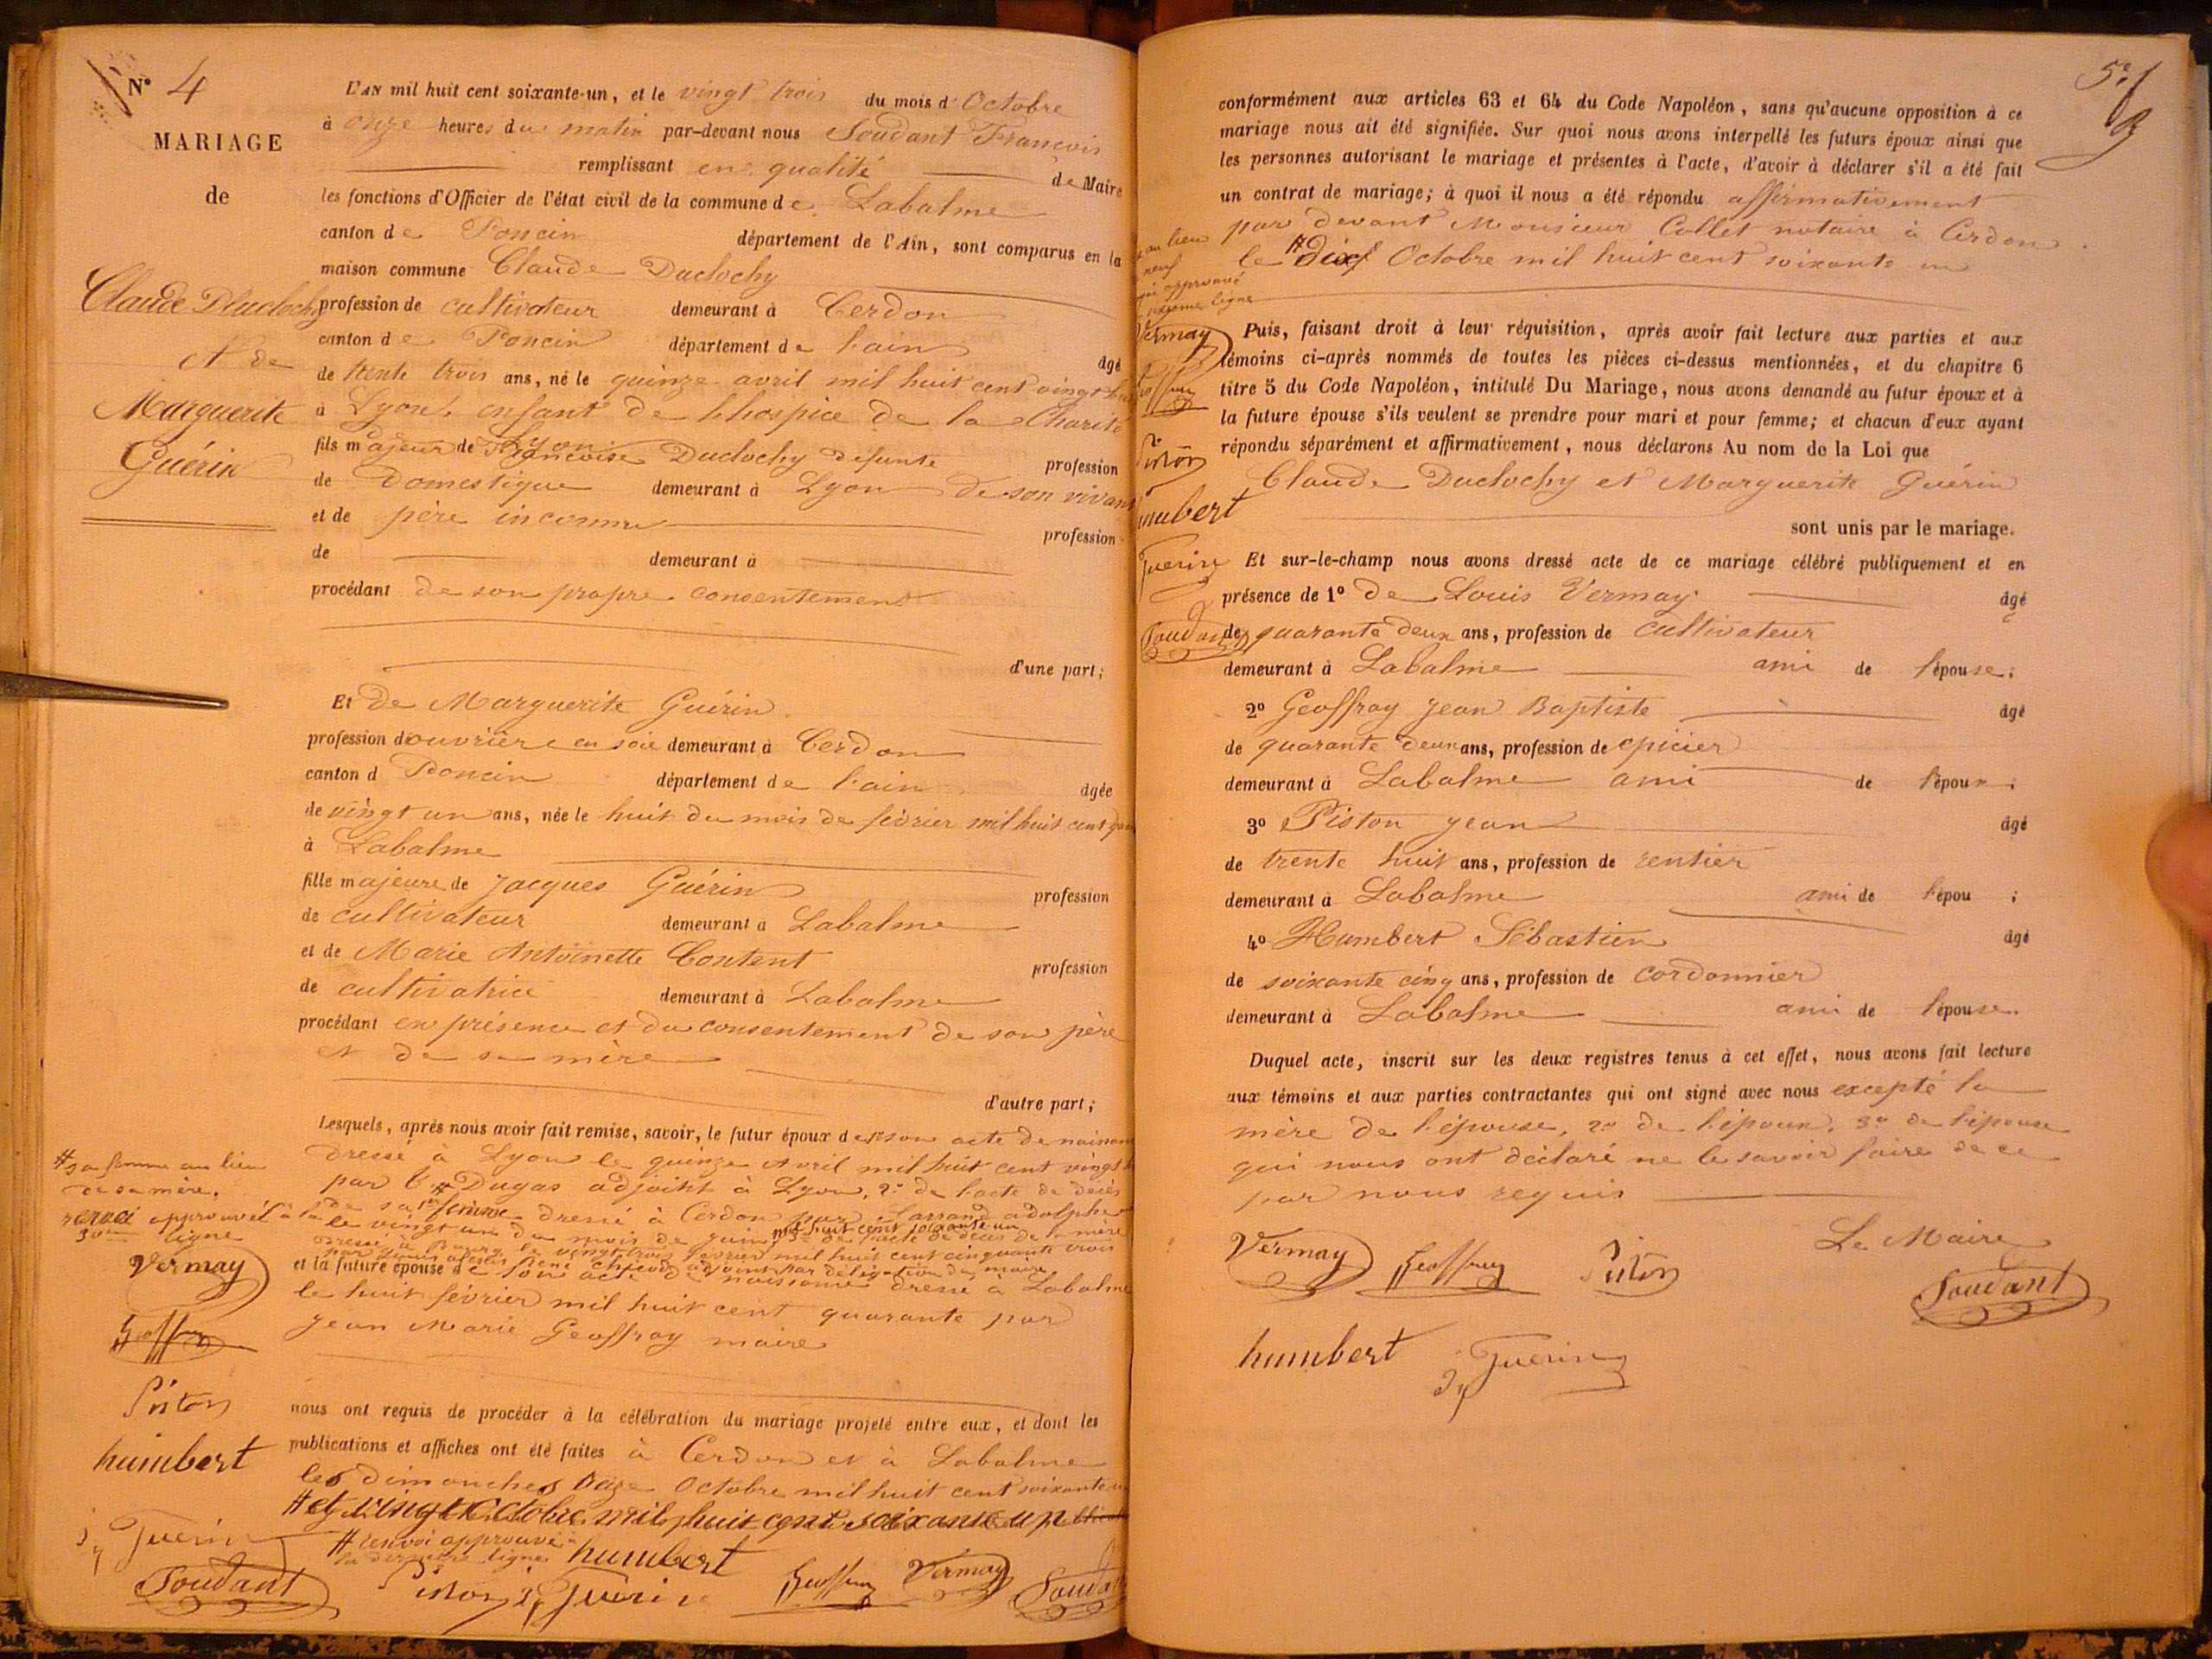 N° 4
MARIAGE
de
Claude Ducloch
et de
Marguerite
Guérin
L'AN mil huit cent soixante-un, et le vingt trois du mois d'Octobre
à onze heures du matin par-devant nous Soudant François
remplissant en qualité de Maire
les fonctions d'Officier de l'état civil de la commune de Labalme
canton de Poncin département de l'Ain, sont comparus en la
maison commune Claude Duclochy
profession de cultivateur demeurant à Cerdon
canton de Poncin département de l'ain âgé
de trente trois ans, né le quinze avril mil huit cent vingt
à Lyon, enfant de l'hospice de la Charité
Lyon
fils majeur de Françoise Duclochy défunte profession
de Domestique demeurant à Lyon de son vivant
et de père inconnu profession
de demeurant à
procédant de son propre consentement
d'une part;
Et de Marguerite Guérin
profession d'ouvrière en soie demeurant à Cerdon
canton d Poncin département de l'ain âgée
de vingt un ans, née le huit du mois de février mil huit cent
à Labalme
fille majeure de Jacques Guérin profession
de cultivateur demeurant à Labalme
et de Marie Antoinette Content profession
de cultivatrice demeurant à Labalme
procédant en présence et du consentement de son père
et de sa mère
d'autre part;
Lesquels, après nous avoir fait remise, savoir, le futur époux de son acte de
dressé à Lyon le quinze Avril mil huit cent vingt
par Dugas adjoint à Lyon, 2° de l'acte de décès
de sa dressé à Cerdon par adolphe
le vingt un du mois de juin mil huit cent soixante un 3° de l'acte de décès de la mère
le vingt trois février mil huit cent cinquante trois
adjoint par délégation du maire
et la future épouse de son acte de naissance dressé à Labalme
le huit février mil huit cent quarante par
Jean Marie Geoffray maire
nous ont requis de procéder à la célébration du mariage projeté entre eux, et dont les
publications et affiches ont été faites à Cerdon et à Labalme
les dimanches Octobre mil huit cent soixante
# et vingt Octobre mil huit cent soixante un
# renvoi approuvé
la dernière ligne
humbert
Piston J Guérin Geoffray Vermay Soudant
# sa femme au lieu
de sa mère.
renvoi approuvé à la
30me ligne
Vermay
Geoffray
Piston
humbert
J Guérin
Soudant
5e
conformément aux articles 63 et 64 du Code Napoléon, sans qu'aucune opposition à ce
mariage nous ait été signifiée. Sur quoi nous avons interpellé les futurs époux ainsi que
les personnes autorisant le mariage et présentes à l'acte, d'avoir à déclarer s'il a été fait
un contrat de mariage; à quoi il nous a été répondu affirmativement
par devant Monsieur Collet notaire à Cerdon
le # dix Octobre mil huit cent soixante un
au lieu
neuf
approuvé
ligne
Vermay
Geoffray
Piston
humbert
Guérin
Soudant
Puis, faisant droit à leur réquisition, après avoir fait lecture aux parties et aux
témoins ci-après nommés de toutes les pièces ci-dessus mentionnées, et du chapitre 6
titre 5 du Code Napoléon, intitulé Du Mariage, nous avons demandé au futur époux et à
la future épouse s'ils veulent se prendre pour mari et pour femme; et chacun d'eux ayant
répondu séparément et affirmativement, nous déclarons Au nom de la Loi que
Claude Duclochy et Marguerite Guérin
sont unis par le mariage.
Et sur-le-champ nous avons dressé acte de ce mariage célébré publiquement et en
présence de 1° De Louis Vermay âgé
de quarante deux ans, profession de cultivateur
demeurant à Labalme ami de l'épouse;
2° Geoffray Jean Baptiste âgé
de quarante deux ans, profession de épicier
demeurant à Labalme ami de l'époux;
3° Piston Jean âgé
de trente huit ans, profession de rentier
demeurant à Labalme ami de l'épou ;
4° Humbert Sébastien âgé
de soixante cinq ans, profession de cordonnier
demeurant à Labalme ami de l'épouse.
Duquel acte, inscrit sur les deux registres tenus à cet effet, nous avons fait lecture
aux témoins et aux parties contractantes qui ont signé avec nous excepté la
mère de l'épouse, 2° de l'époux, 3° de l'épouse
qui nous ont déclaré ne le savoir faire de ce
par nous requis
Le Maire
Vermay Geoffray Piston Soudant
humbert J Guérin